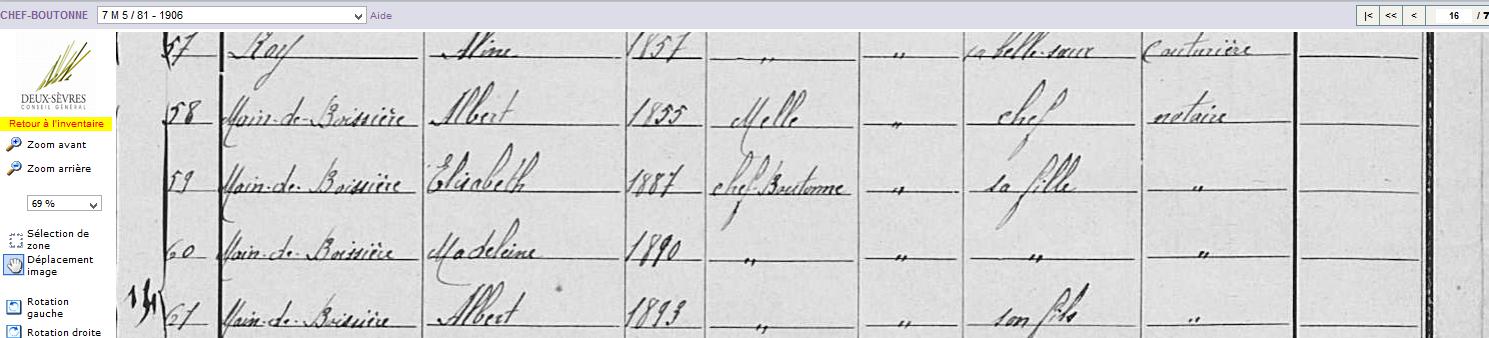 CHEF-BOUTONNE 7 M 5 / 81 - 1906 Aide |< << < 16 / 7
DEUX-SÈVRES
CONSEIL GÉNÉRAL
Retour à l'inventaire
Zoom avant
Zoom arrière
69 %
Sélection de
zone
Déplacement
image
Rotation
gauche
Rotation droite
57 Roy Aline 1857 " " sa belle-sœur Couturière
58 Main-de-Boissière Albert 1855 Melle " chef notaire
59 Main-de-Boissière Elisabeth 1887 chef-Boutonne " sa fille "
60 Main-de-Boissière Madeleine 1890 " " " "
61 Main-de-Boissière Albert 1893 " " son fils "